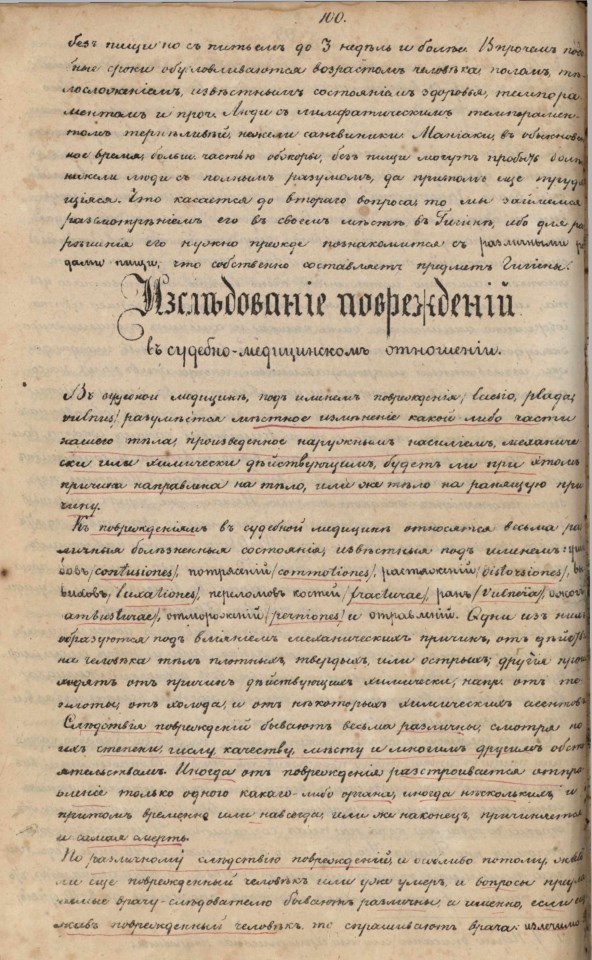 100.
безъ пищи но съ питьемъ до 3 недѣль и болѣе. Впрочемъ
сроки обусловливаются возрастомъ человѣка, поломъ, тѣ
лосложеніемъ, извѣстнымъ состояніемъ здоровья, темпера
ментомъ и проч. Люди съ лимфатическимъ темперамен
томъ терпѣливѣй, нежели сангвиники. Маніаки, въ обыкновен
ное время, больш. частью обжоры, безъ пищи могутъ пробыть
нежели люди съ полнымъ разумомъ, да притомъ еще трудя
щіяся. Что касается до втораго вопроса, то мы займемся
разсмотрѣніемъ его въ своемъ мѣстѣ, въ Гигіенѣ, ибо для раз
рѣшенія его нужно прежде познакомится съ различными ро
дами пищи, что собственно составляетъ предметъ Гигіены.
Изслѣдованіе поврежденій
въ судебно-медицинскомъ отношеніи.
Въ судебной медицинѣ, подъ именемъ поврежденія, /laesio, plaga,
vulnus/ разумѣется мѣстное измѣненіе какой либо части
нашего тѣла, произведенное наружнымъ насиліемъ, механиче
ски или химически дѣйствующимъ, будетъ ли при этомъ
причина направлена на тѣло, или же тѣло на ранящую при
чину.
Къ поврежденіямъ въ судебной медицинѣ относятся весьма ра
личныя болѣзненныя состоянія, извѣстныя подъ именемъ:
бовъ /contusiones/, потрясеній /commotiones/, растяженій /distorsiones/, вы
виховъ, /luxationes/, переломовъ костей /fracturae/, ранъ /vulnera/, ожогов
ambusturae/, отмороженій /perniones/ и отравленій. Одни изъ нихъ
образуются подъ вліяніемъ механическихъ причинъ, отъ дѣйств
на человѣка тѣлъ плотныхъ, твердыхъ, или острыхъ; другія про
ходятъ отъ причинъ дѣйствующихъ химически, напр. отъ те
плоты, отъ холода, и отъ нѣкоторыхъ химическихъ агентовъ
Слѣдствія поврежденій бываютъ весьма различны, смотря по
ихъ степени, числу, качеству, мѣсту и многимъ другимъ обст
ятельствамъ. Иногда отъ поврежденія разстроивается отпра
вленіе только одного какаго-либо органа, иногда нѣсколькихъ, и
притомъ временно или навсегда; или же наконецъ, причиняется
и самая смерть.
По различному слѣдствію поврежденій, и особливо потому, живъ
ли еще поврежденный человѣкъ или уже умеръ, и вопросы
врачу-слѣдователю бываютъ различны, а именно, если
живъ поврежденный человѣкъ, то спрашиваютъ врача: излечимо